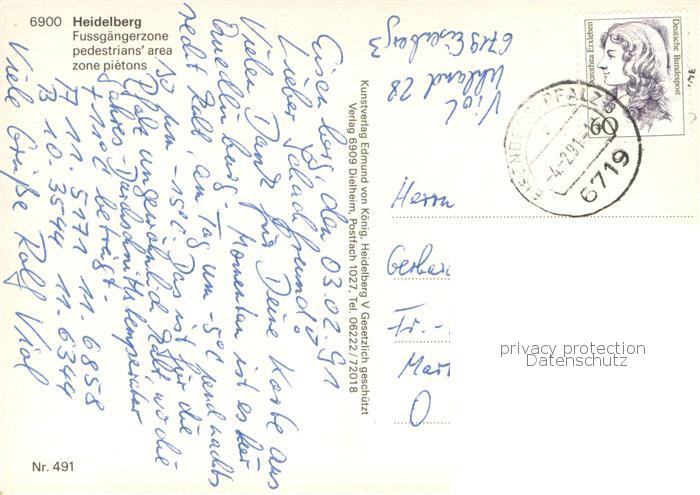 6900 Heidelberg
Fussgängerzone
pedestrians' area
zone piétons
Eisenberg, den 03.02.91
Lieber Schachfreund!
Vielen Dank für Deine Karte aus
Quedlinburg. Momentan ist es hier
recht kalt, am Tag um -5°C und nachts
bis zum -15°C. Das ist für die
Pfalz ungewöhnlich kalt, wo die
Jahres-Durchschnittstemperatur
+11°C beträgt.
7 11. 5171 11. 6858
3 10. 3544 11. 6344
Viele Grüße Ralf Viol
Nr. 491
Kunstverlag Edmund von König, Heidelberg V Gesetzlich geschützt
Verlag 6909 Dielheim, Postfach 1027, Tel. 06222/72018
Viol
Uhland 28
6719 Eisenberg 3
Dorothea Erxleben
Deutsche Bundespost
60
EISENBERG, PFALZ
-4.-2.91
6719
Herrn
Gerhar
Fr.-
Mar
O
privacy protection
Datenschutz